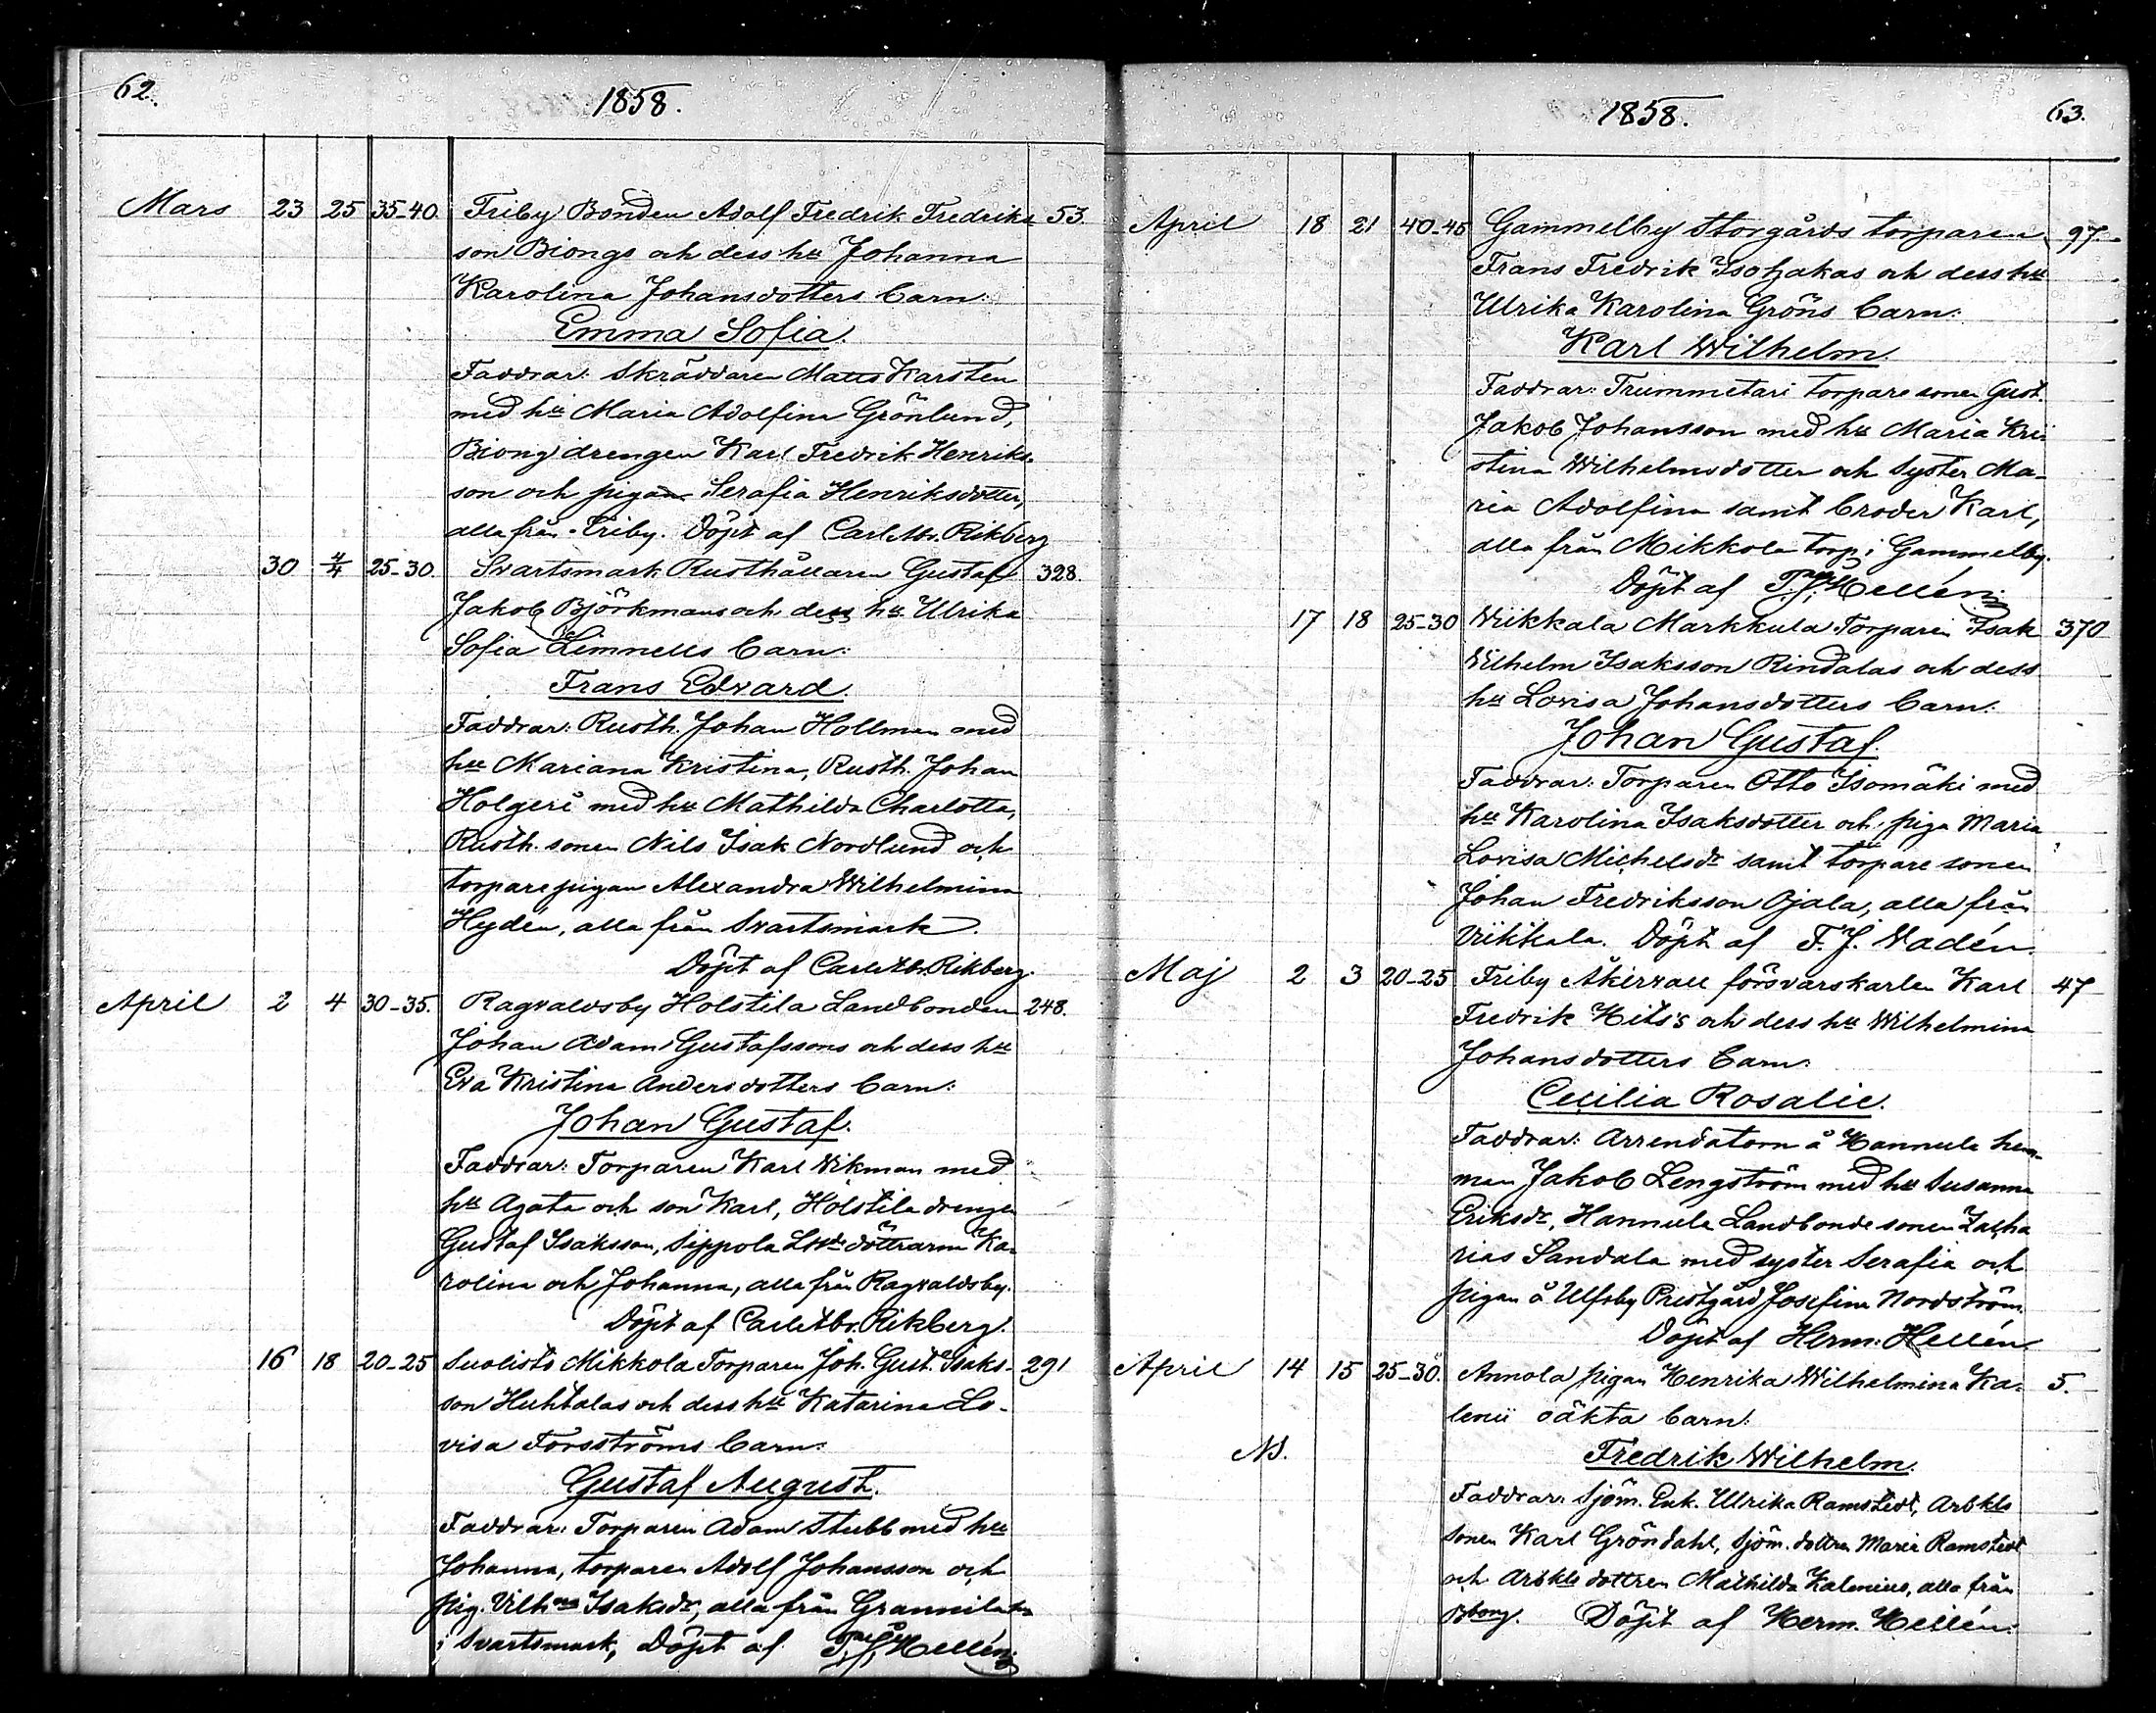 62.
1858.
Mars 23 25 35-40. Friby Bonden Adolf Fredrik Fredriks- 53.
son Biongs och dess hu Johanna
Karolina Johansdotters barn:
Emma Sofia.
Faddrar: Skräddaren Matts Karsten
med hu Maria Adolfina Grönlund,
Biong drengen Karl Fredrik Henriks-
son och pigan Serafia Henriksdotter,
alla från Friby. Döpt af Carl Rikberg
30 4/4 25-30. Svartsmark Rusthållaren Gustaf 328.
Jakob Björkmans och dess hu Ulrika
Sofia Limnells barn:
Frans Edvard.
Faddrar: Rusth. Johan Hollmen med
hu Mariana Kristina, Rusth. Johan
Holgeri med hu Mathilda Charlotta,
Rusth. sonen Nils Isak Nordlund och
torparepigan Alexandra Wilhelmina
Hydén, alla från Svartsmark.
Döpt af Carl Rikberg.
April 2 4 30-35. Ragvaldsby Holstila Landbonden 248.
Johan Adam Gustafssons och dess hu
Eva Kristina Andersdotters barn:
Johan Gustaf.
Faddrar: Torparen Karl Vikman med
hu Agata och son Karl, Holstila drengen
Gustaf Isaksson, Sippola döttrarne Ka-
rolina och Johanna, alla från Ragvaldsby.
Döpt af Carl Rikberg.
16 18 20-25 Suolisto Mikkola Torparen Joh. Gust. Isaks- 291
son Huhtalas och dess hu Katarina Lo-
visa Forsströms barn:
Gustaf August.
Faddrar: Torparen Adam Stubb med hu
Johanna, torparen Adolf Johansson och
pig. Vilhna Isaksdr, alla från Grannila
i Svartsmark, Döpt af Hellén
1858.
63.
April 18 21 40-45 Gammelby Storgårds torparen 97.
Frans Fredrik Isotjakas och dess hu
Ulrika Karolina Gröns barn:
Karl Wilhelm.
Faddrar: Trummetari torpare sonen Gust.
Jakob Johansson med hu Maria Kri-
stina Wilhelmsdotter och syster Ma-
ria Adolfina samt broder Karl,
alla från Mikkola torp i Gammelby.
Döpt af Hellén
17 18 25-30 Wiikkala Markkula Torparen Isak 370
Wilhelm Isaksson Rindalas och dess
hu Lovisa Johansdotters barn:
Johan Gustaf.
Faddrar: Torparen Otto Isomäki med
hu Karolina Isaksdotter och piga Maria
Lovisa Michelsdr samt torpare sonen
Johan Fredriksson Ojala, alla från
Viikkala. Döpt af F. J. Wadén.
Maj 2 3 20-25 Friby Åkirvall försvarskarlen Karl 47
Fredrik Heits's och dess hu Wilhelmina
Johansdotters barn:
Cecilia Rosalie.
Faddrar: Arrendatorn å Hannula hem-
man Jakob Lengström med hu Susanna
Eriksdr, Hannula Landbonde sonen Zacha
rias Sandala med syster Serafia och
pigan å Ulfsby Prestgård Josefina Nordström.
Döpt af Herm. Hellén
April 14 15 25-30. Annola pigan Henrika Wilhelmina Ka- 5.
lenii oäkta barn:
Fredrik Wilhelm.
Faddrar: Sjöm. Enk. Ulrika Ramstedt, Arbkls
sonen Karl Gröndahl, Sjöm. dottren Maria Ramstedt
och Arbkls dottren Mathilda Kalenius, alla från
Bjborg. Döpt af Herm. Hellén.